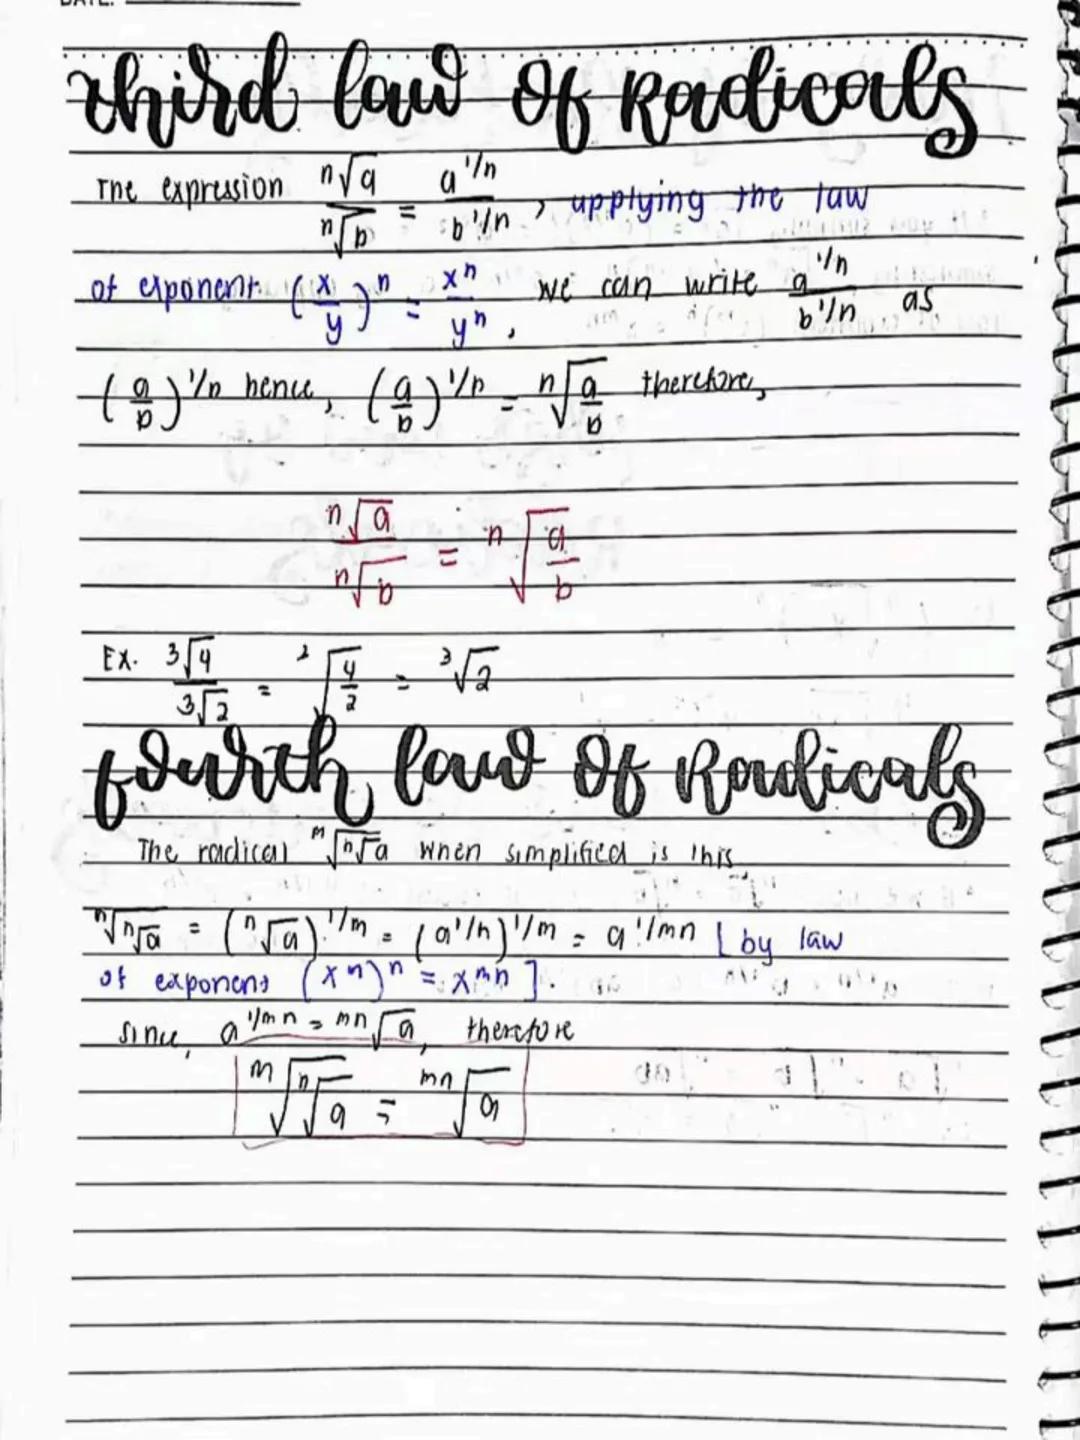 DATE:
Third law of Radicals
The expression ⁿ√a / ⁿ√b = a^1/n / b^1/n , applying the law
of exponent (x/y)ⁿ = xⁿ/yⁿ , we can write a^1/n / b^1/n as
(a/b)^1/n hence, (a/b)^1/n = ⁿ√a/b therefore,
ⁿ√a / ⁿ√b = ⁿ√a/b
Ex. ³√4 / ³√2 = ²√4/2 = ³√2
fourth law of Radicals
The radical ᵐ√ⁿ√a when simplified is this
ⁿ√ⁿ√a = (ⁿ√a)^1/m = (a^1/n)^1/m = a^1/mn [by law
of exponent (xᵐ)ⁿ = x^mn].
Since, a^1/mn = ᵐⁿ√a, therefore
ᵐ√ⁿ√a = ᵐⁿ√a